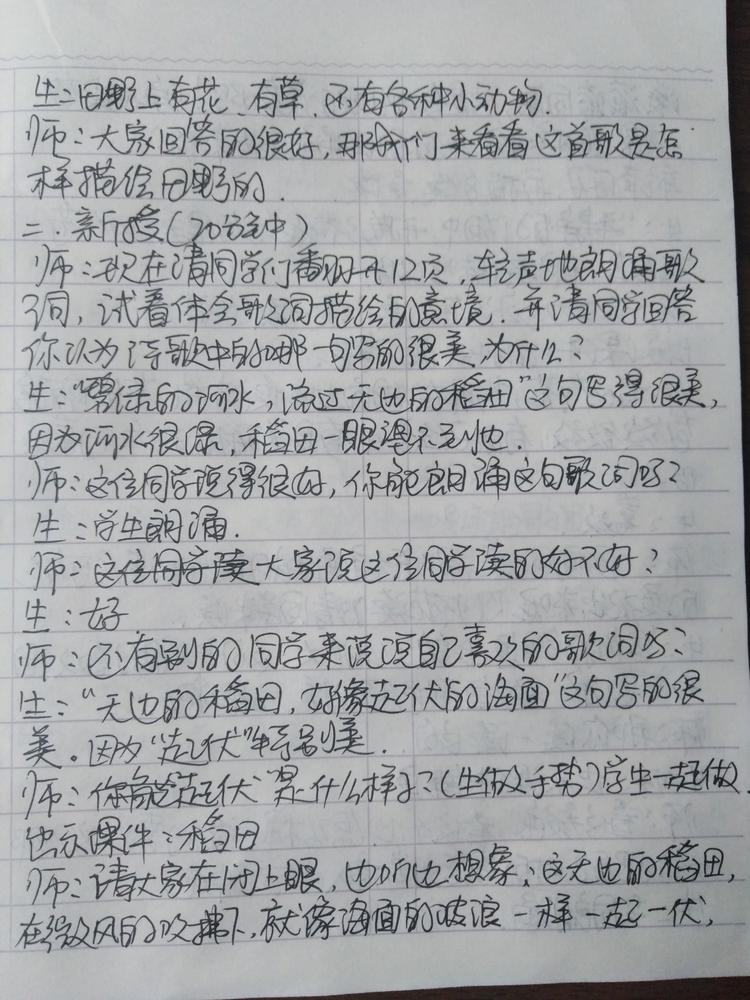 生：田野上有花、有草、还有各种小动物.
师：大家回答的很好，那我们来看看这首歌是怎
样描绘田野的.
二.新授（20分钟）
师：现在请同学们翻开12页，轻声地朗诵歌
词，试着体会歌词描绘的意境.并请同学回答
你认为诗歌中的哪一句写的很美，为什么？
生：“碧绿的河水，流过无边的稻田”这句写得很美，
因为河水很绿，稻田一眼望不到边.
师：这位同学说得很好，你能朗诵这句歌词吗？
生：学生朗诵.
师：这位同学读大家说这位同学读的好不好？
生：好
师：还有别的同学来说说自己喜欢的歌词吗？
生：“无边的稻田，好像起伏的海面”这句写的很
美。因为“起伏”特别美.
师：你能起伏“是什么样子？（生做及手势）学生一起做.
出示课件：稻田
师：请大家在闭上眼，边听边想象：这无边的稻田，
在微风的吹拂下，就像海面的波浪一样一起一伏，